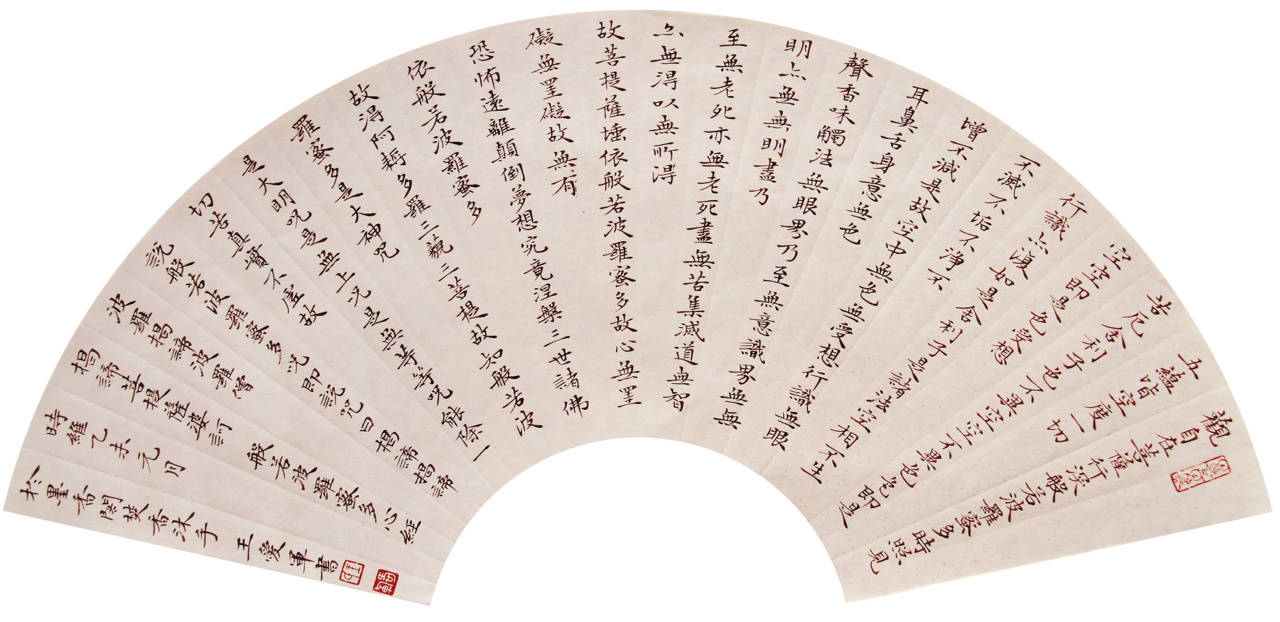 觀自在菩薩行深般若波羅蜜多時照見
五蘊皆空度一切
苦厄舍利子色不異空空不異色色即是
空空即是色受想
行識亦復如是舍利子是諸法空相不生
不滅不垢不淨不
增不減是故空中無色無受想行識無眼
耳鼻舌身意無色
聲香味觸法無眼界乃至無意識界無無
明亦無無明盡乃
至無老死亦無老死盡無苦集滅道無智
亦無得以無所得
故菩提薩埵依般若波羅蜜多故心無罣
礙無罣礙故無有
恐怖遠離顛倒夢想究竟涅槃三世諸佛
依般若波羅蜜多
故得阿耨多羅三藐三菩提故知般若波
羅蜜多是大神咒
是大明咒是無上咒是無等等咒能除一
切苦真實不虛故
說般若波羅蜜多咒即說咒曰揭諦揭諦
波羅揭諦波羅僧
揭諦菩提薩婆訶 般若波羅蜜多心經
時維乙未元月
於墨香閣焚香沐手 王愛軍書